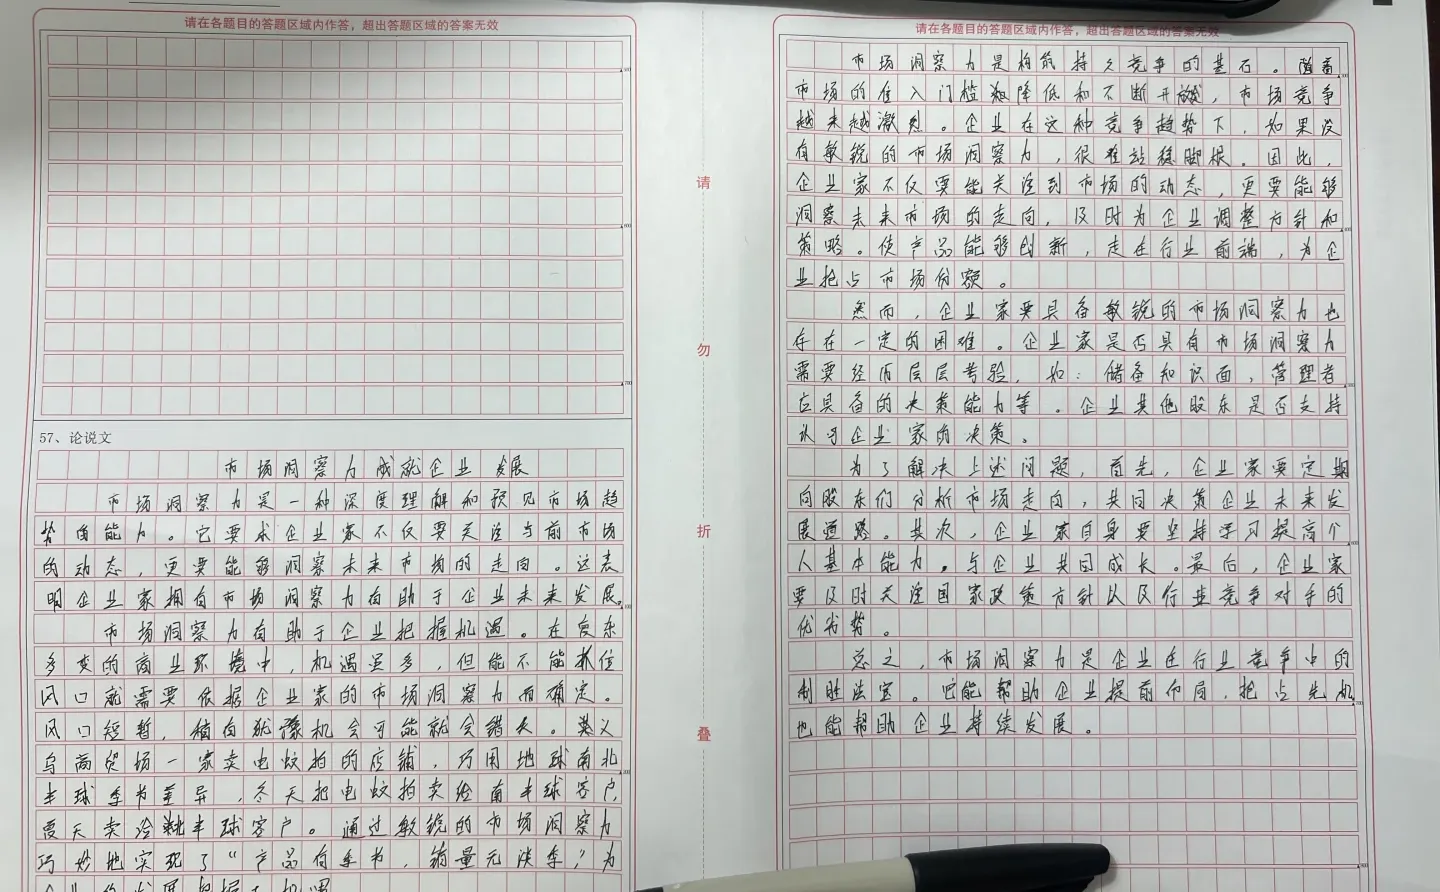 请在各题目的答题区域内作答，超出答题区域的答案无效
57、论说文
市场洞察力成就企业发展
市场洞察力是一种深度理解和预见市场趋
势的能力。它要求企业家不仅要关注当前市场
的动态，更要能够洞察未来市场的走向。这表
明企业家拥有市场洞察力有助于企业未来发展。
市场洞察力有助于企业把握机遇。在复杂
多变的商业环境中，机遇虽多，但能不能抓住
风口就需要依据企业家的市场洞察力而确定。
风口短暂，稍有犹豫机会可能就会错失。义
乌商贸场一家卖电蚊拍的店铺，巧用地球南北
半球季节差异，冬天把电蚊拍卖给南半球客户，
夏天卖给半球客户。通过敏锐的市场洞察力
巧妙地实现了“产品有季节，销量无淡季”为
企业的发展把握了机遇
请
勿
折
叠
请在各题目的答题区域内作答，超出答题区域的答案无效
市场洞察力是构筑持久竞争的基石。随着
市场的准入门槛降低和不断开放，市场竞争
越来越激烈。企业在这种竞争趋势下，如果没
有敏锐的市场洞察力，很难站稳脚根。因此，
企业家不仅要能关注到市场的动态，更要能够
洞察未来市场的走向，及时为企业调整方针和
策略。使产品能够创新，走在行业前端，为企
业抢占市场份额。
然而，企业家要具备敏锐的市场洞察力也
存在一定的困难。企业家是否具有市场洞察力
需要经历层层考验，如：储备知识面，管理者
应具备的决策能力等。企业其他股东是否支持
认可企业家的决策。
为了解决上述问题，首先，企业家要定期
向股东们分析市场走向，共同决策企业未来发
展道路。其次，企业家自身要坚持学习提高个
人基本能力。与企业共同成长。最后，企业家
要及时关注国家政策方针以及行业竞争对手的
优劣势。
总之，市场洞察力是企业在行业竞争中的
制胜法宝。它能帮助企业提前布局，抢占先机
也能帮助企业持续发展。